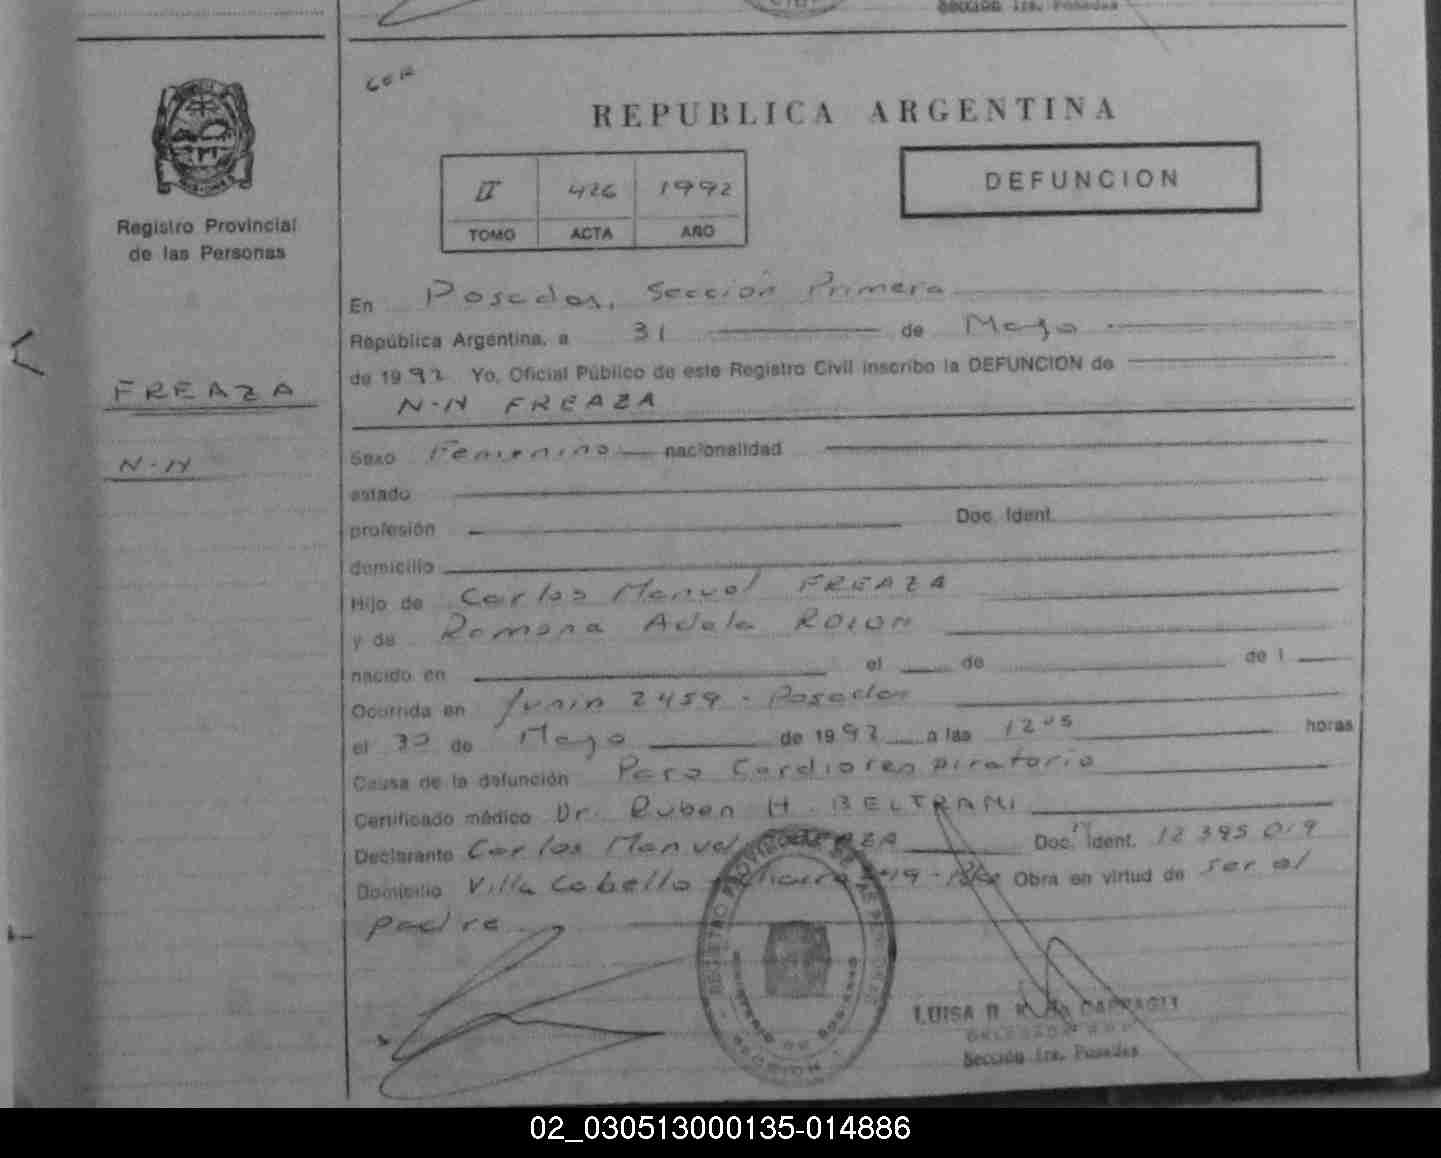 Sección 1ra. Posadas
COR
REPUBLICA ARGENTINA
II 426 1992
TOMO ACTA AÑO
DEFUNCION
Registro Provincial
de las Personas
FREAZA
N-N
En Posadas, Sección Primera
República Argentina, a 31 de Mayo
de 1992 Yo, Oficial Público de este Registro Civil inscribo la DEFUNCION de
N-N FREAZA
Sexo Femenino nacionalidad
estado
profesión Doc. Ident.
domicilio
Hijo de Carlos Manuel FREAZA
y de Ramona Adela ROLON
nacido en el de de 1
Ocurrida en Junin 2459 - Posadas
el 30 de Mayo de 1992 a las 12 05 horas
Causa de la defunción Paro Cardiorespiratorio
Certificado médico Dr. Ruben H. BELTRAMI
Declarante Carlos Manuel FREAZA Doc. Ident. 12 395 019
Domicilio Villa Cabello Obra en virtud de ser el
padre
REGISTRO PROVINCIAL DE LAS PERSONAS
MINISTERIO DE GOBIERNO
LUISA
Sección 1ra. Posadas
02_030513000135-014886